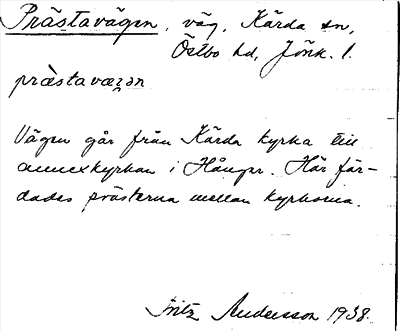 Prästavägen, väg, Kärda sn,
Östbo hd, Jönk. l.
præ̀stavæꞬən
Vägen går från Kärda kyrka till
annexkyrkan i Hånger. Här fär-
dades prästerna mellan kyrkorna.
Fritz Andersson 1938.